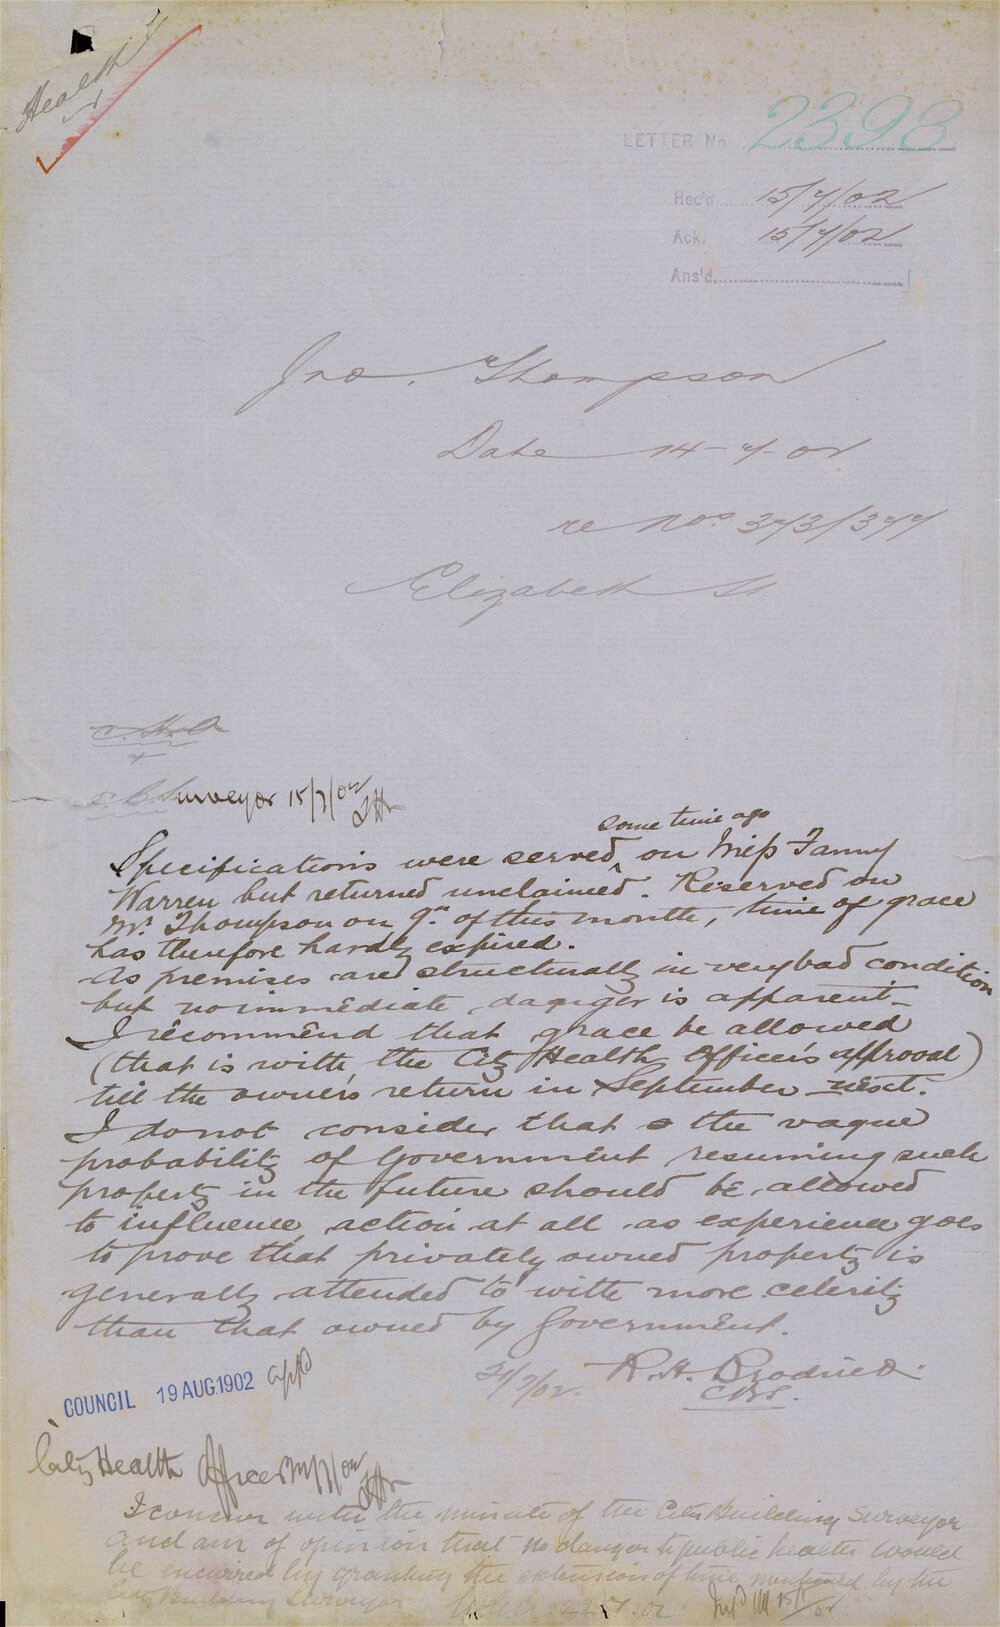 Health
LETTER No 2398
Rec'd 15/7/02
Ack. 15/7/02
Ans'd
Jno. Thompson
Date 14-7-02
re Nos 373/377
Elizabeth St
C.H.O
+
C B Surveyor 15/7/02
some time ago
Specifications were served ^ on Miss Fanny
Warren but returned unclaimed. Reserved on
Mr. Thompson on 9th of this month, time of grace
has therefore hardly expired.
As premises are structurally in very bad condition
but no immediate danger is apparent
I recommend that grace be allowed
(that is with, the City Health Officer's approval)
till the owners return in September next.
I do not consider that the vague
probability of Government resuming such
property in the future should be allowed
to influence action at all as experience goes
to prove that privately owned property is
generally attended to with more celerity
than that owned by Government.
21/7/02. R. H. Brodrick
C.B.S.
COUNCIL 19 AUG. 1902 appd
City Health Officer /7/02
I concur with the minute of the City Building Surveyor
and am of opinion that no danger to public health would
be incurred by granting the extension of time mentioned by the
City Building Surveyor 22.7.02